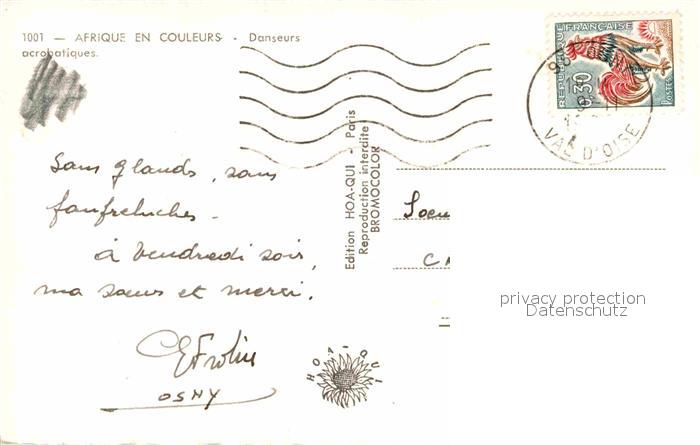 1001 — AFRIQUE EN COULEURS - Danseurs
acrobatiques.
REPUBLIQUE FRANÇAISE
0,30
POSTES
VAL D'OISE
Sans glands, sans
fanfreluches -
à vendredi soir,
ma sœur et merci.
OSNY
Edition HOA-QUI - Paris
Reproduction interdite
BROMOCOLOR
HOA-QUI
Soeu
privacy protection
Datenschutz